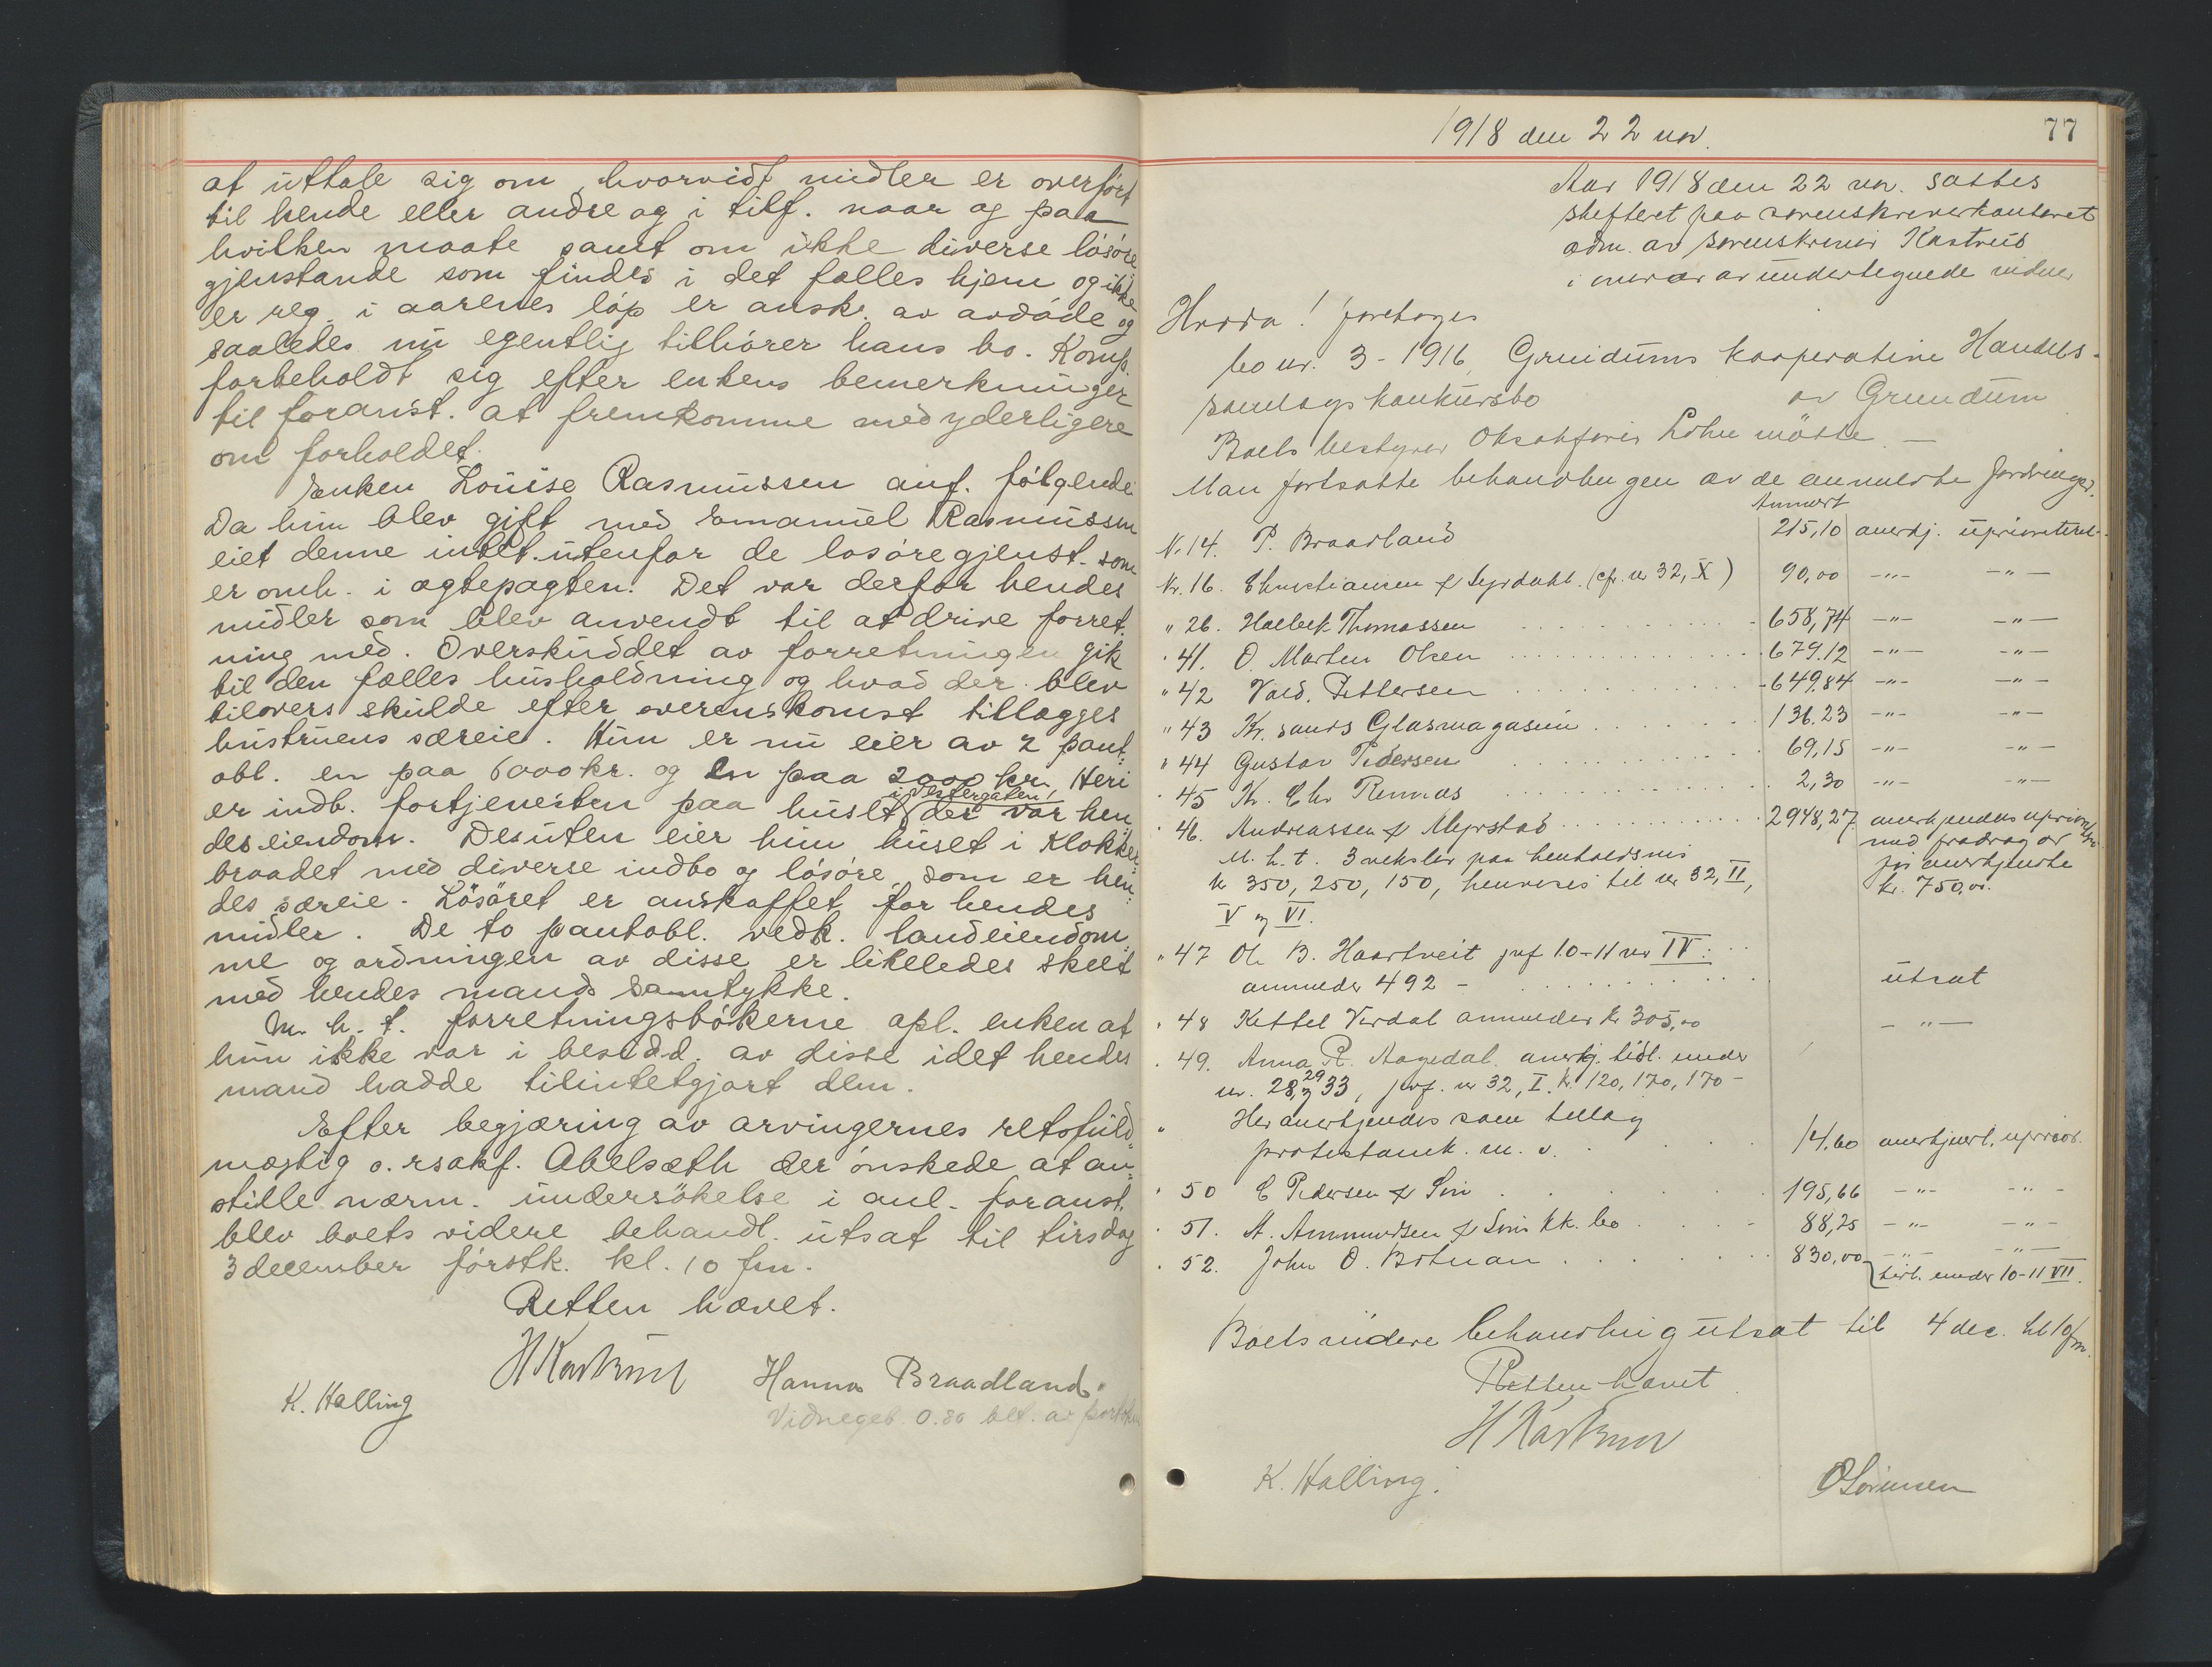 at uttale sig om, hvorvidt midler er overført
til hende eller andre og i tilf. naar og paa
hvilken maate samt om ikke diverse løsøre
gjenstande som findes i det fælles hjem og ikke
er reg. i aarenes løp er ansk. av avdøde og
saaledes nu egentlig tilhører hans bo. Komp.
forbeholdt sig efter enkens bemerkninger
til foranst. at fremkomme med yderligere
om forholdet.
Enken Louise Rasmussen anf. følgende
Da hun blev gift med Emanuel Rasmussen
eiet denne intet utenfor de løsøregjenst. som
er omh. i ægtepagten. Det var derfor hendes
midler som blev anvendt til at drive forret-
ning med. Overskuddet av forretningen gik
til den fælles husholdning og hvad der blev
tilovers skulde efter overenskomst tillægges
hustruens særeie. Hun er nu eier av 2 pant-
obl. en paa 6000 kr. og en paa 2000 kr. Heri
er indb. fortjenesten paa huset i Vestergaten, der var hen
des eiendom. Desuten eier hun huset i Klokker-
braadet med diverse indbo og løsøre som er hen-
des særeie. Løsøret er anskaffet for hendes
midler. De to pantobl. vedk. landeiendom-
me og ordningen av disse er likeledes skeet
med hendes mands samtykke.
M. h. t. forretningsbøkerne opl. enken at
hun ikke var i besidd. av disse idet hendes
mand hadde tilintetgjort dem.
Efter begjæring av arvingernes retsfuld-
mægtig o.rsakf. Abelsæth der ønskede at an-
stille nærm. undersøkelse i anl. foranst.
blev boets videre behandl. utsat til tirsdag
3 december førstk. kl. 10 fm.
Retten hævet.
H Kastrud
K. Halling
Hanna Braadland.
Vidnegeb. 0.80 bet. av
1918 den 22 nov.
77
Aar 1918 den 22 nov. sattes
skifteret paa sorenskriverkontoret
adm. av sorenskriver Kastrud
i nærvær av undertegnede vidner
Hvorda! foretoges
bo nr. 3 - 1916, Greindums kooperative Handels-
samlags konkursbo av Grundum
Boets bestyrer Oksakfører Løhn møtte —
Man fortsatte behandlingen av de anmeldte fordringer.
Anmeldt
Nr. 14. P. Braadland 215,10 anerkj. uprioriteret
Nr. 16. Christiansen & Lyrdahl. (cf. nr 32, X) 90,00 -"- -"-
" 26. Holbek Thomassen 658,74 -"- -"-
" 41. O. Marten Olsen 679.12 -"- -"-
" 42 Vald. Pettersen 649.84 -"- -"-
" 43 Kr.sands Glasmagasin 136.23 -"- -"-
" 44 Gustav Pedersen 69,15 -"- -"-
" 45 Kr. Chr 2,30 -"- -"-
" 46. Andreassen & Myrstad 2948,27 anerkjendes uprioritert
med fradrag av
før anerkjendte
kr. 750,00.
M. h. t. 3 veksler paa henholdsvis
kr 350, 250, 150, henvises til nr 32, II,
V og VI.
" 47 Ole B. Haartveit jvf 10-11 nr IV.
anmelder 492 - utsat
" 48 Kittel Verdal anmelder kr 305,00 -"-
" 49. Anna R. Aagedal anerkj. tidl. under
nr. 28, 29 og 33, jvf. nr 32, I. kr. 120, 170, 170 -
" Her anerkjendes som tillæg
protestomk. m. v. 14.60 anerkjent. uprior.
" 50 C Pedersen & Søn 195,66 -"- -"-
" 51. A. Ammundsen & Søns kk. bo 88,25 -"- -"-
" 52. John O. Bitnan 830,00 -"- -"-
tidl. under 10-11 VII.
Boets videre behandling utsat til 4 dec. kl 10 fm.
Retten hævet
H Kastrud
K. Halling.
O Sørensen